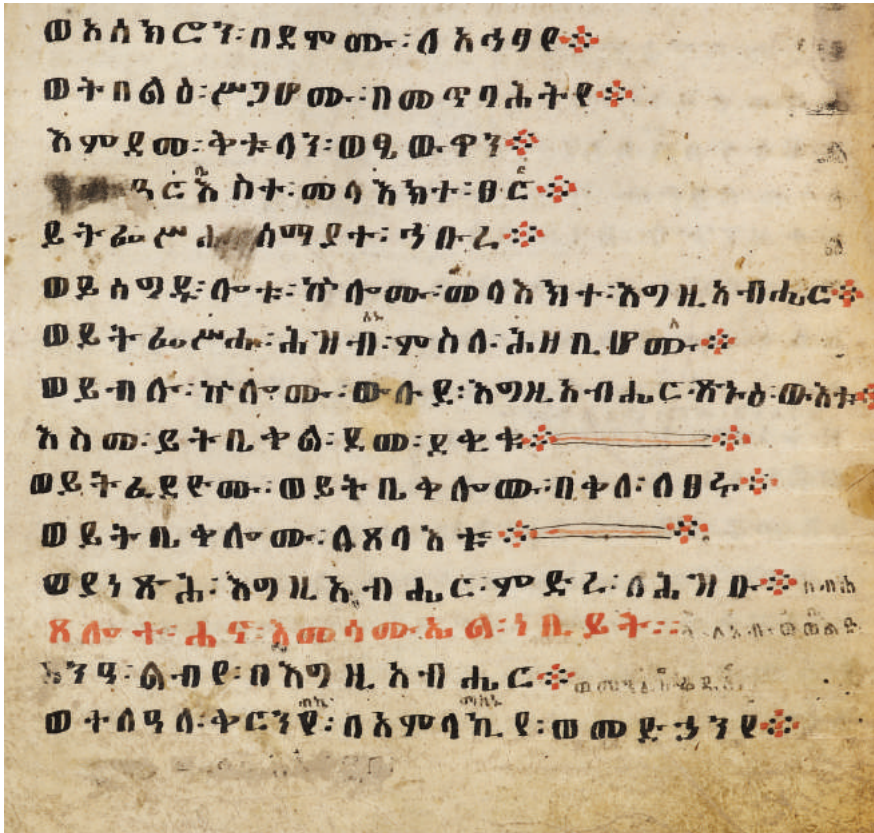 ወአሰክሮን፡በደምሙ፡ለአኅፃየ፨
ወትበልዕ፡ሥጋሆሙ፡በመጥባሕትየ፨
እምደመ፡ቅቱላን፡ወፂውዋን፨
ዓርእስተ፡መላእክተ፡ፀር፨
ይትፌሥሑ፡ሰማያተ፡ኅቡረ፨
ወይሰግዱ፡ሎቱ፡ኵሎሙ፡መላእክተ፡እግዚአብሔር፨
ወይትፌሥሑ፡ሕዝብ፡ምስለ፡ሕዘቢሆሙ፨
ወይብሉ፡ኵሎሙ፡ውሉደ፡እግዚአብሔር፡ጽኑዕ፡ውእቱ፨
እስመ፡ይትቤቀል፡ደመ፡ደቂቁ፨
ወይትፈደዮሙ፡ወይትቤቀሎሙ፡በቀለ፡ለፀሩ፨
ወይትቤቀሎሙ፡ለጸላእቱ፨
ወያነጽሕ፡እግዚአብሔር፡ምድረ፡ለሕዝቡ፨
ጸሎተ፡ሐና፡እመ፡ሳሙኤል፡ነቢይት፡፡
ጸንዓ፡ልብየ፡በእግዚአብሔር፨
ወተለዓለ፡ቀርንየ፡በአምላኪየ፡ወመድኃንየ፨